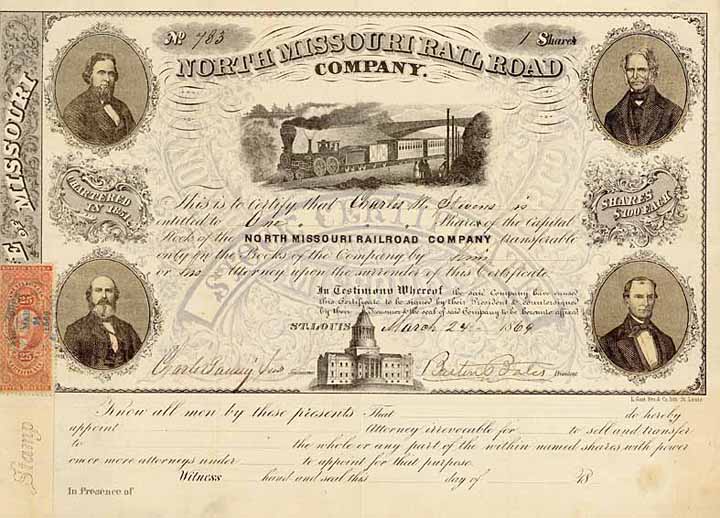 No 783
1 Shares
NORTH MISSOURI RAIL ROAD
COMPANY.
MISSOURI
CHARTERED
IN 1851.
SHARES
$100 EACH.
This is to Certify that Charles M. Stevens is
entitled to One Shares of the Capital
Stock of the NORTH MISSOURI RAILROAD COMPANY transferable
only on the Books of the Company by him
or his Attorney upon the surrender of this Certificate.
In Testimony Whereof the said Company have caused
this Certificate to be signed by their President & countersigned
by their Treasurer & the seal of said Company to be hereunto affixed
ST. LOUIS March 24 1864
25
25
Barton Bates President
L. Gast Bro. & Co. lith. St. Louis
Know all men by these presents That do hereby
appoint Attorney irrevocable for to sell and transfer
to the whole or any part of the within named shares with power
one or more attorneys under to appoint for that purpose.
Witness hand and seal this day of 18
In Presence of
Stamp